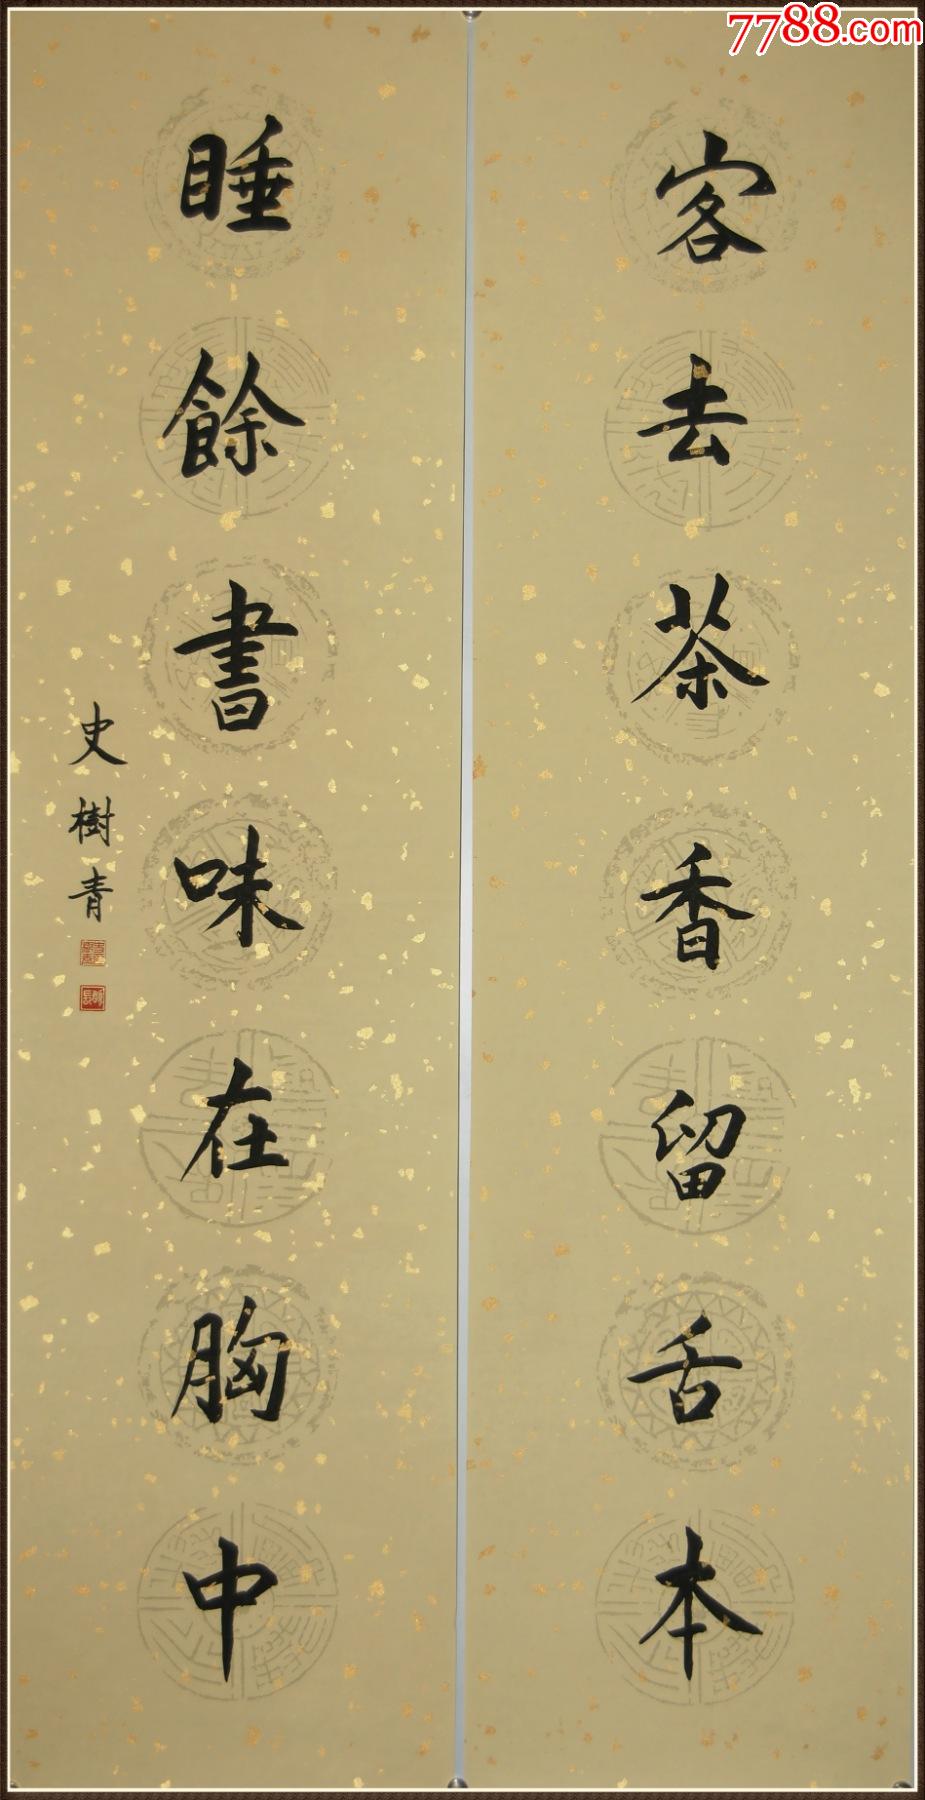 7788.com
客去茶香留舌本
睡餘書味在胸中
史樹青